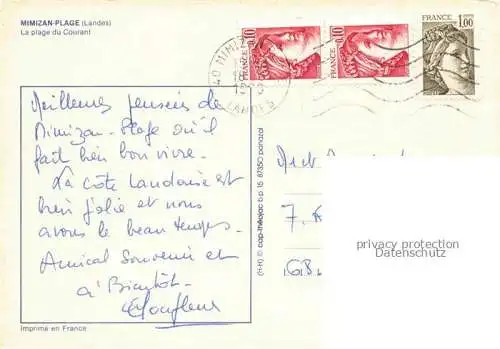 MIMIZAN-PLAGE (Landes)
La plage du Courant
FRANCE
0,10
FRANCE
0,10
FRANCE
1,00
40 MIMIZAN
LANDES
Meilleures pensées de
Mimizan-Plage où il
fait bien bon vivre.
La côte landaise est
bien jolie et nous
avons le beau temps.
Amical Souvenir et
à Bientôt.
7.
68
cap-théojac b.p. 15 87350 panazol
privacy protection
Datenschutz
Imprimé en France